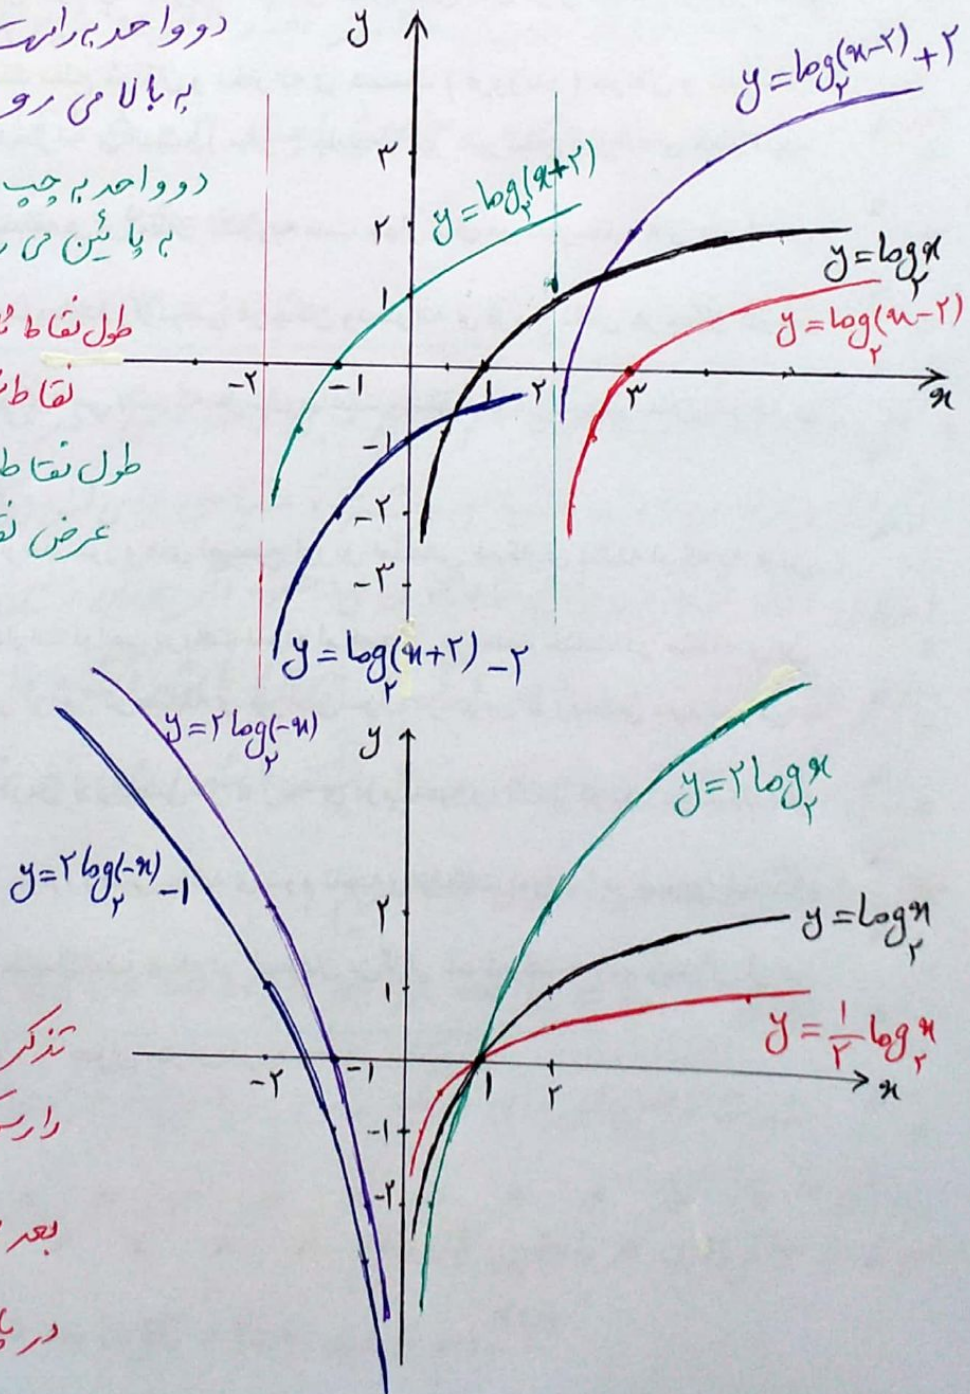 دو واحد به راست
به بالا می رو
دو واحد به چپ
به پائین می ر
طول نقاط
نقاط
طول نقاط
عرض
y
۳
۲
۱
-۲ -۱ ۱ ۲ ۳
x
-۱
-۲
-۳
y = log₂(x-۲) + ۲
y = log₂(x+۲)
y = log₂x
y = log₂(x-۲)
y = log₂(x+۲) - ۲
y = ۲log₂(-x)
y
y = ۲log₂x
y = ۲log₂(-x) - ۱
y = log₂x
y = ۱/۲ log₂x
۲
۱
-۲ -۱ ۱ ۲
x
-۱
-۲
تذکر
بعد